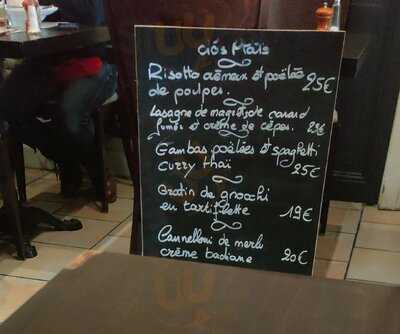 Risotto crémeux et poêlée
de poulpes. 25€
Lasagne de magret de canard
fumés et crème de cèpes. 23€
Gambas poêlées et spaghetti
curry thaï 25€
Gratin de gnocchi
en tartiflette 19€
Cannelloni de merlu
crème badiane 20€